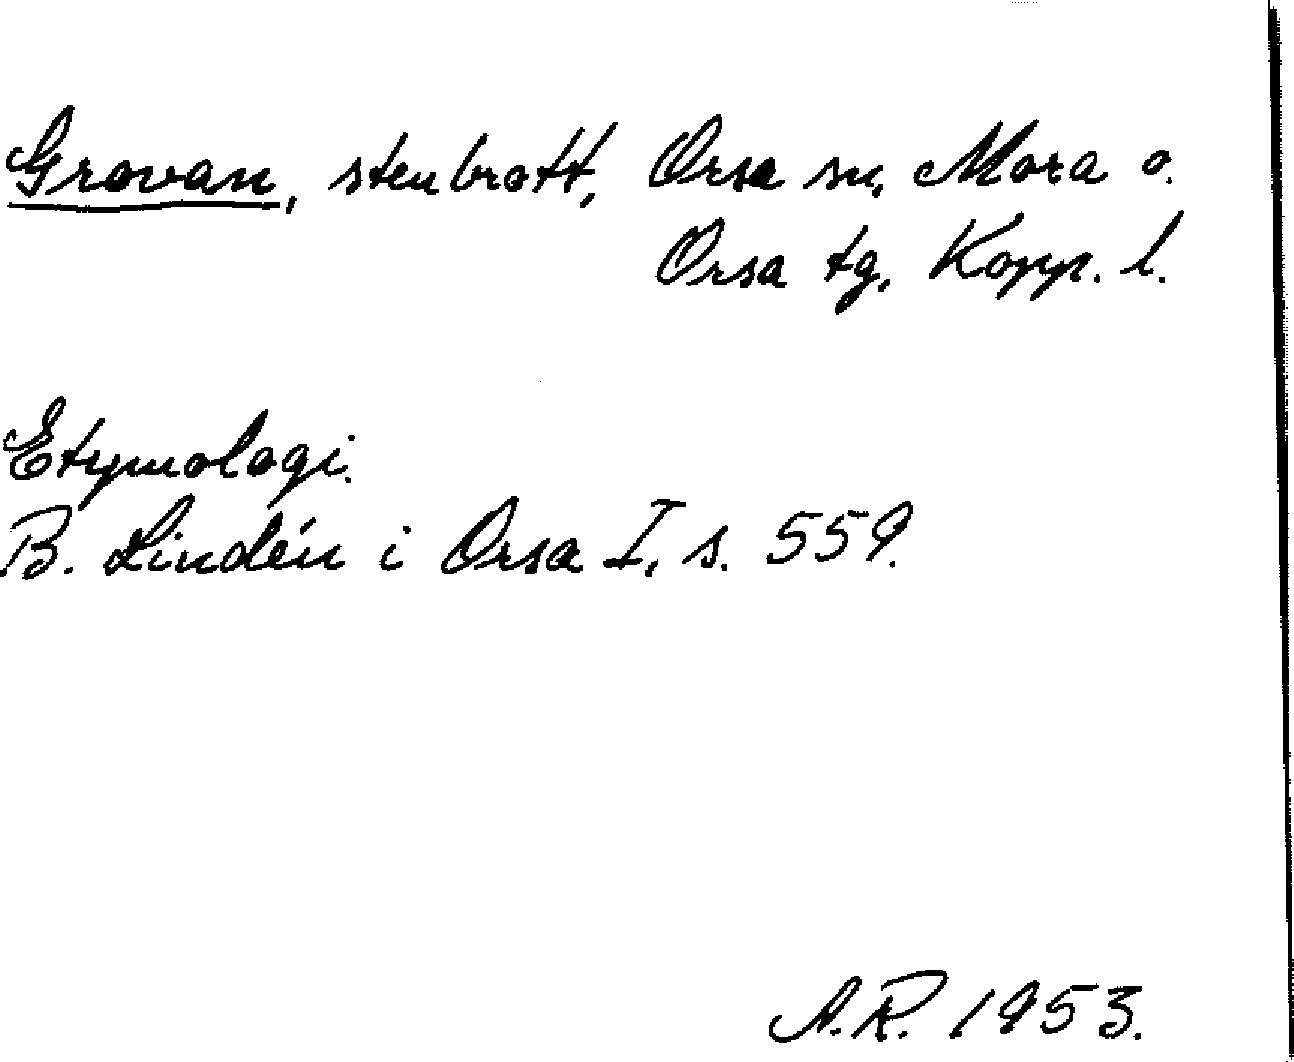 Grovan, stenbrott, Orsa sn, Mora o.
Orsa tg, Kopp. l.
Etymologi.
B. Lindén i Orsa I, s. 559.
A.R. 1953.